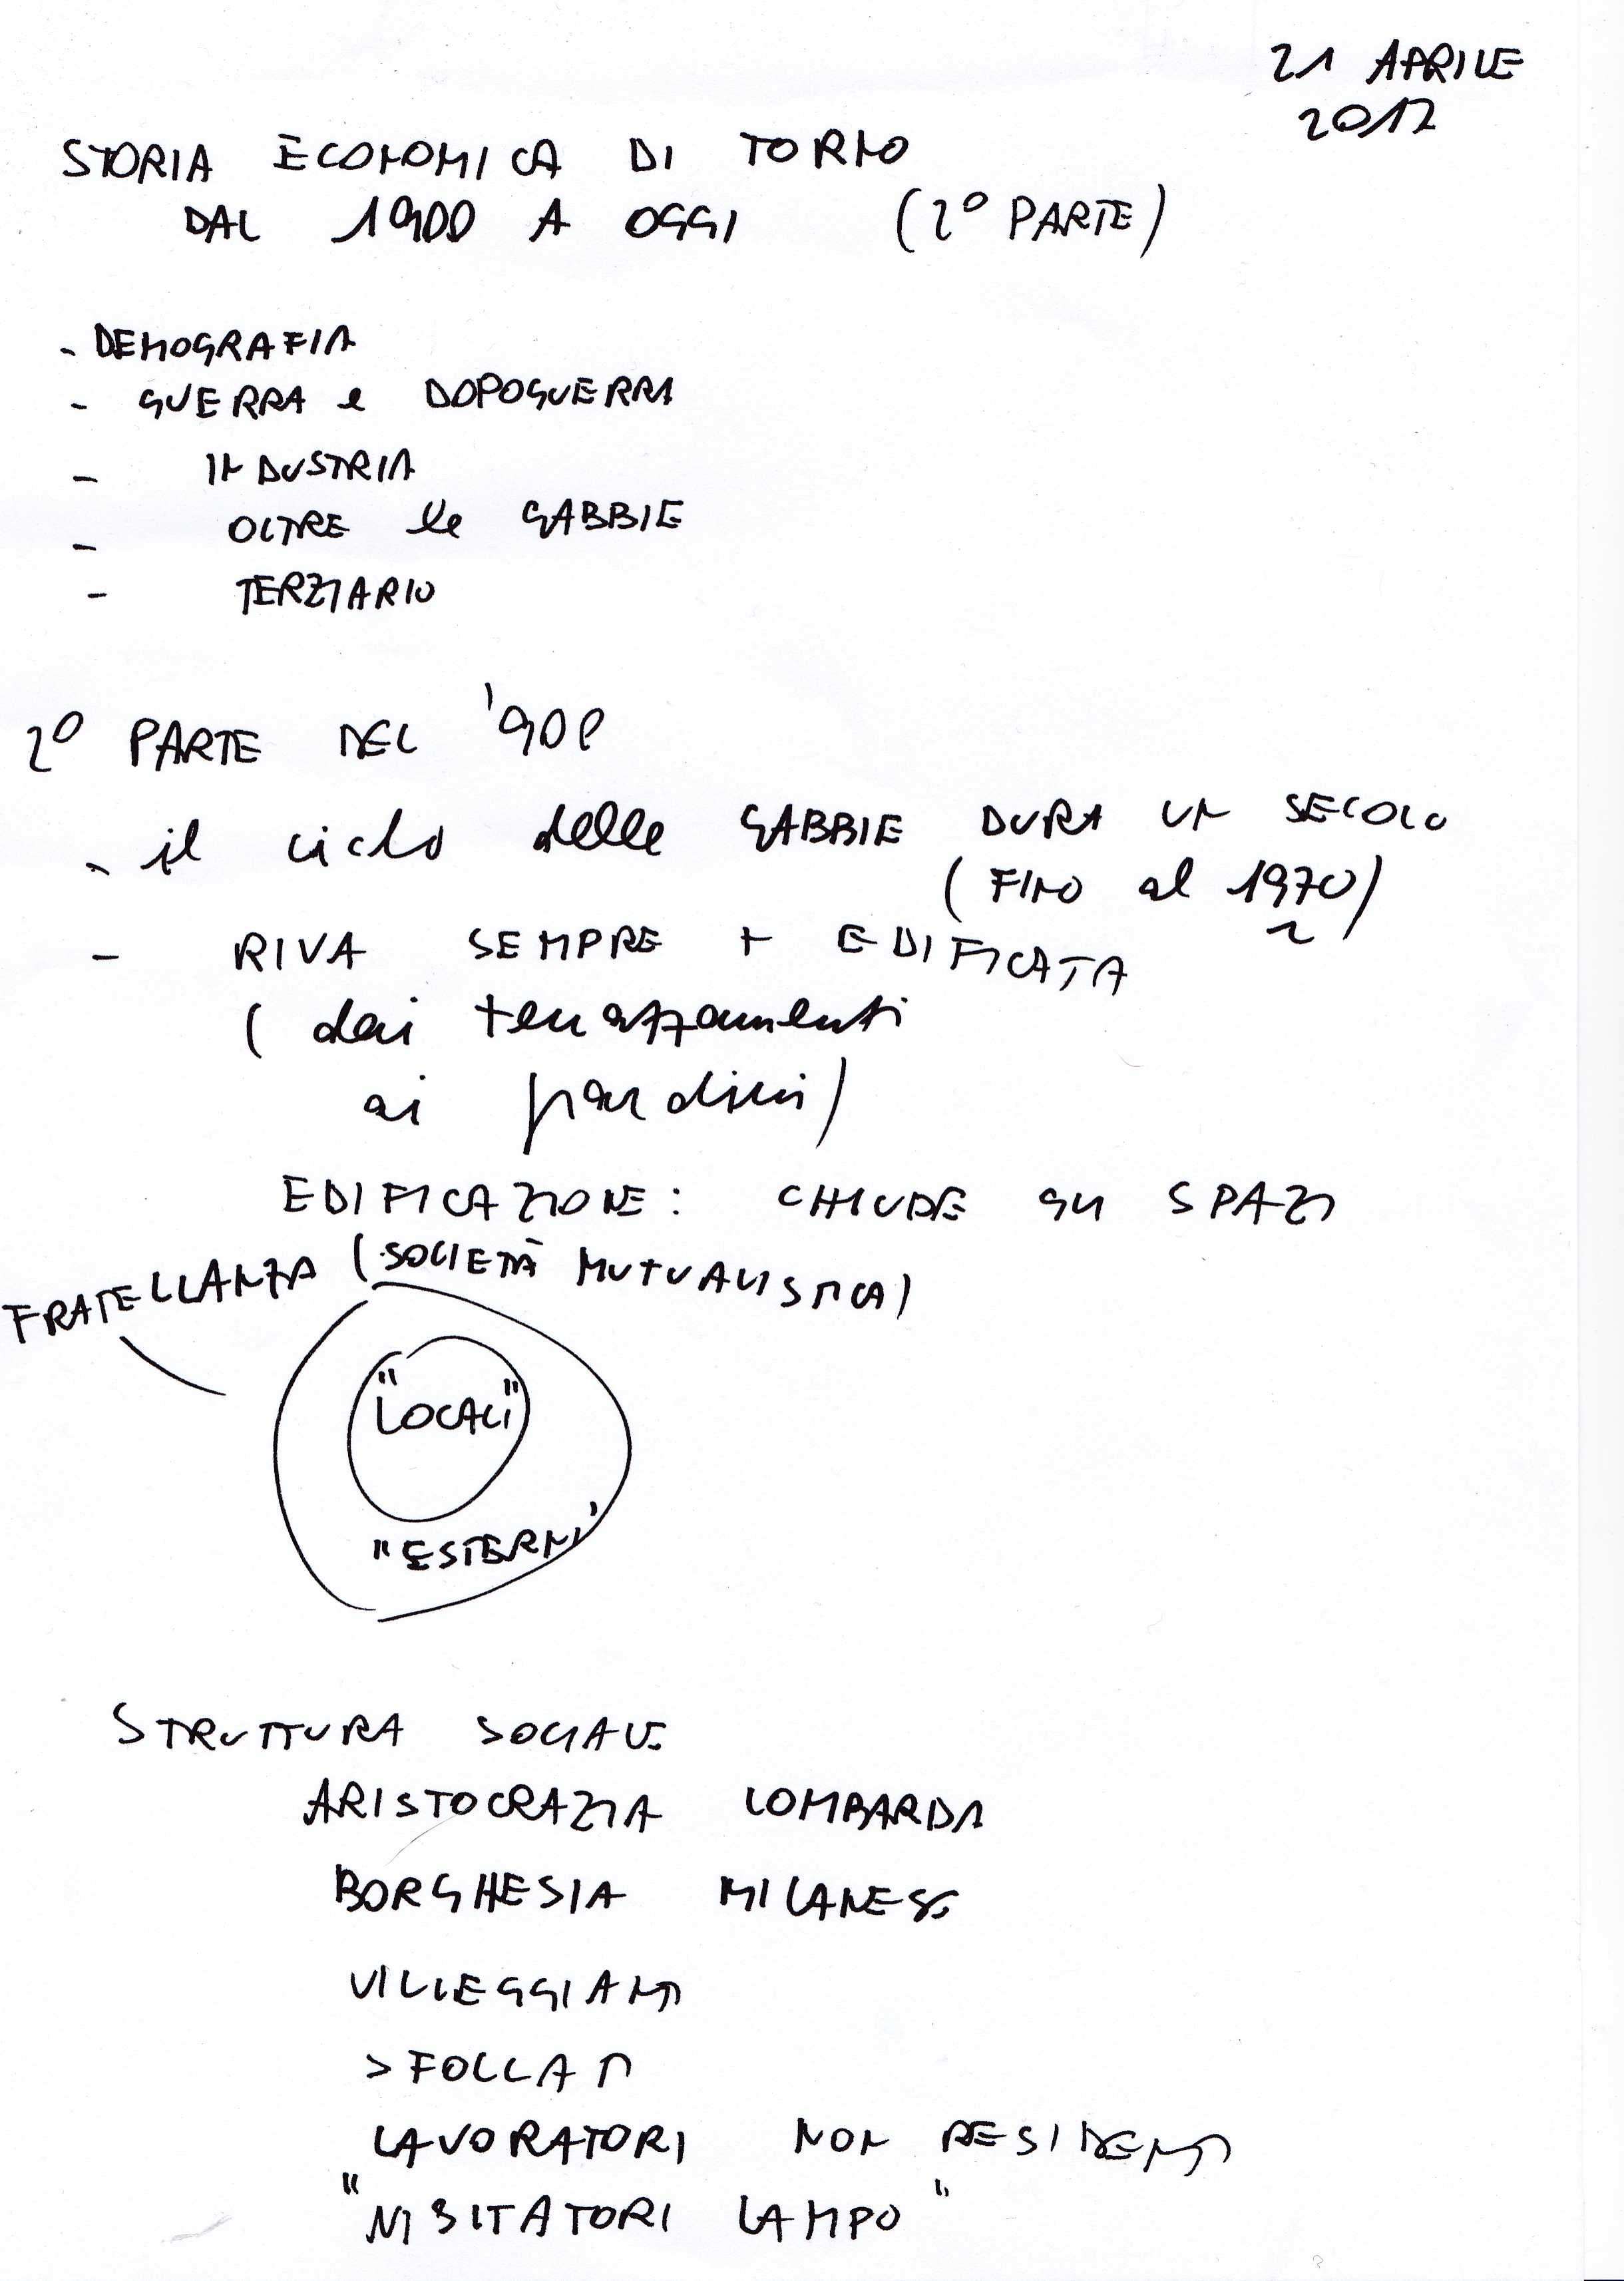 21 APRILE
2012
STORIA ECONOMICA DI TORNO
DAL 1900 A OGGI (2° PARTE)
- DEMOGRAFIA
- GUERRA e DOPOGUERRA
- INDUSTRIA
- OLTRE le GABBIE
- TERZIARIO
2° PARTE DEL '900
- il ciclo delle GABBIE DURA UN SECOLO
(FINO al 1970)
- RIVA SEMPRE + EDIFICATA
( dai terrazzamenti
ai giardini)
EDIFICAZIONE: CHIUDE GLI SPAZI
FRATELLANZA (SOCIETÀ MUTUALISTICA)
"LOCALI"
"ESTERNI"
STRUTTURA SOCIALE
ARISTOCRAZIA LOMBARDA
BORGHESIA MILANESE
VILLEGGIANTI
SFOLLATI
LAVORATORI NON RESIDENTI
"VISITATORI LAMPO"